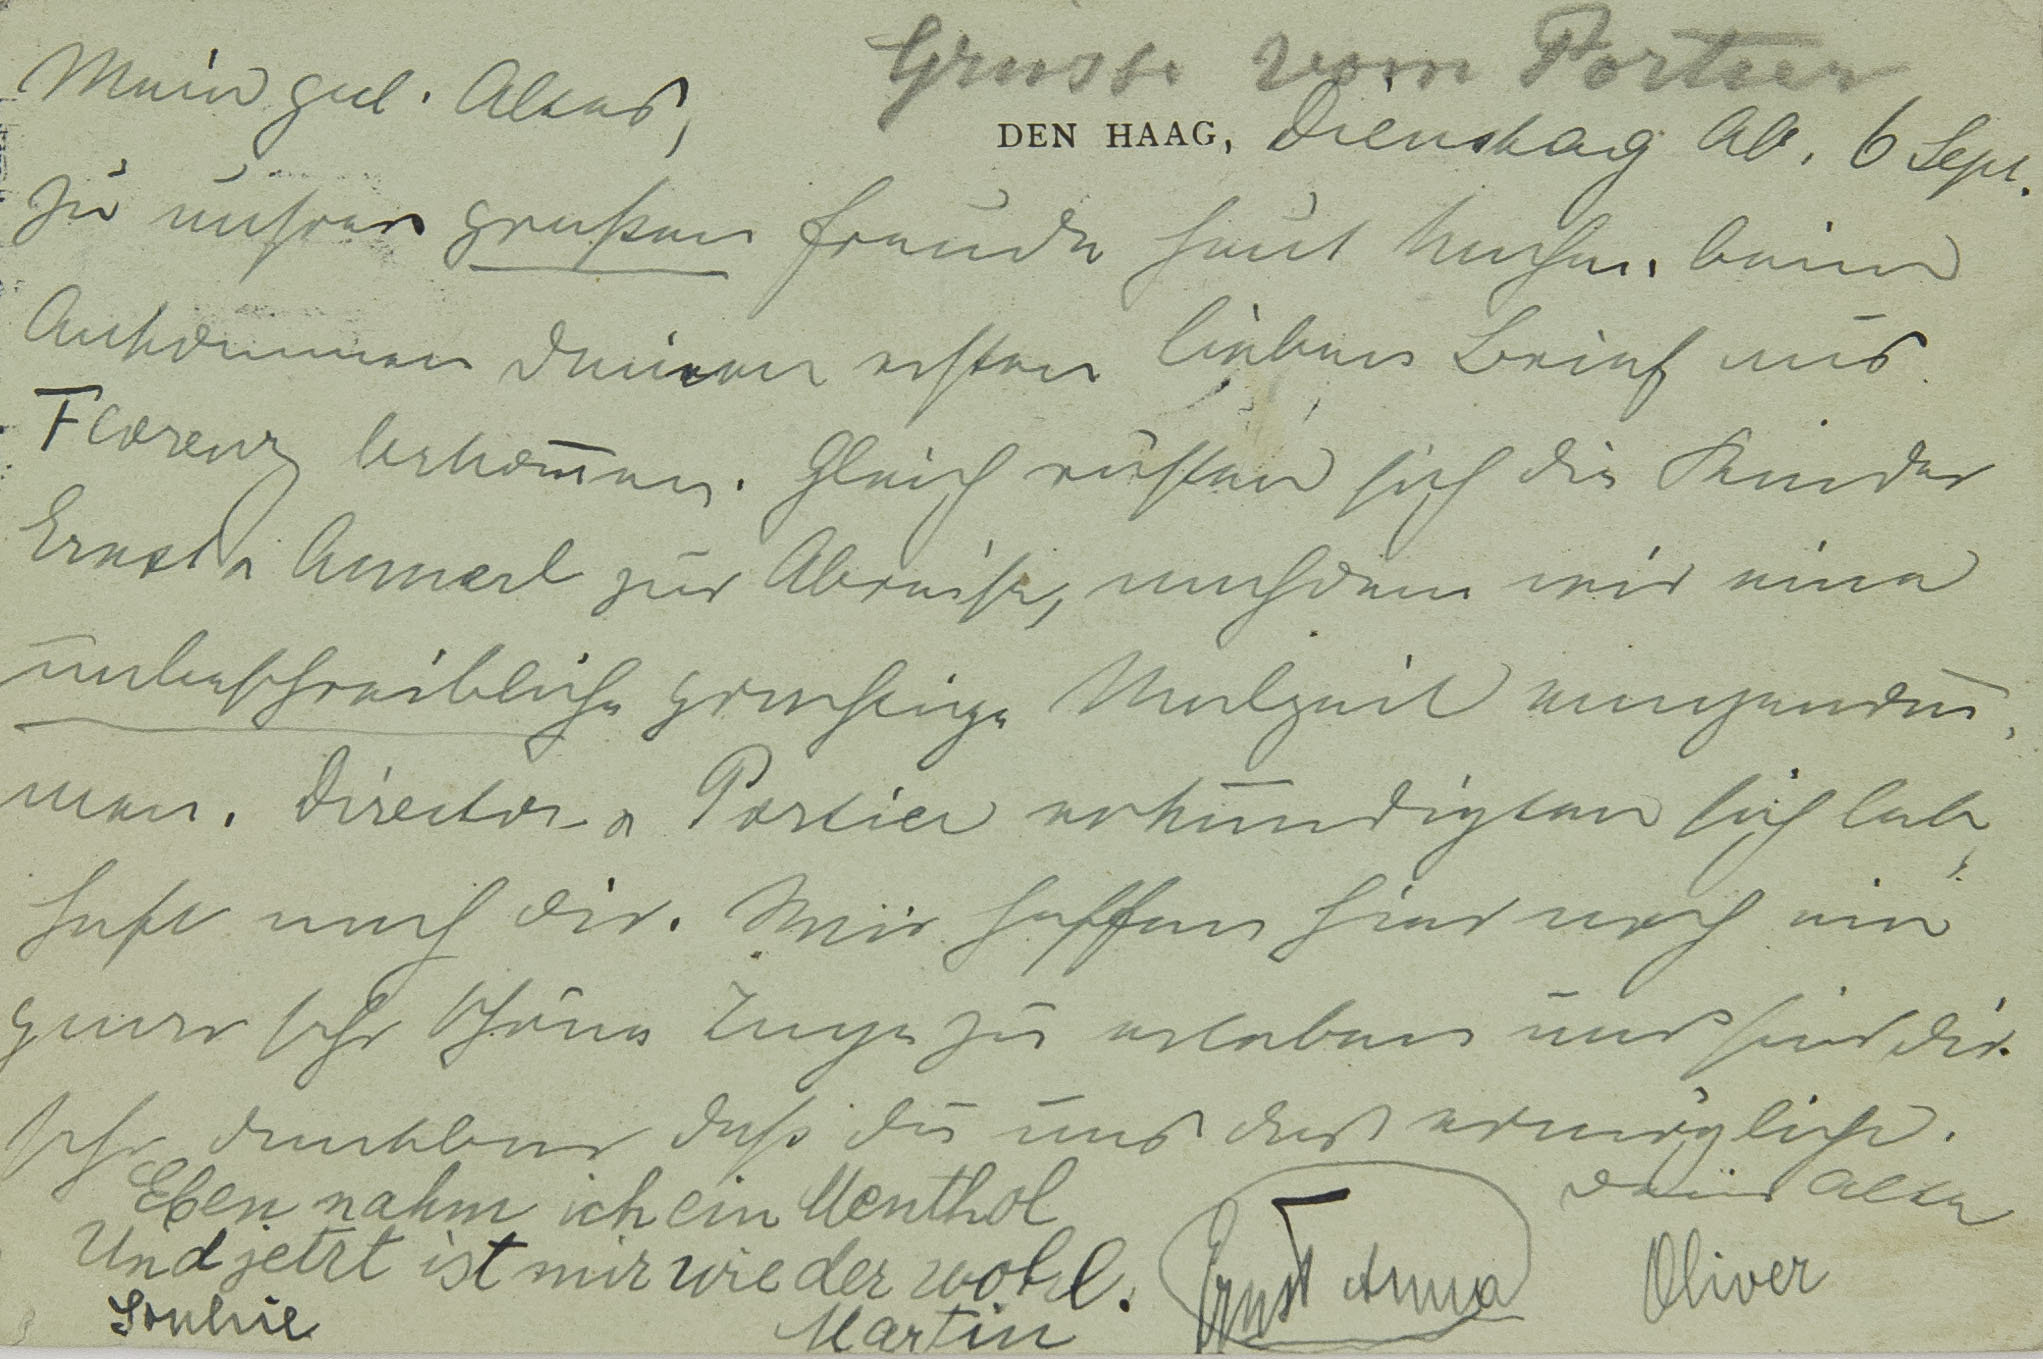 Grüsse vom Portier
Mein gel. Alter,
DEN HAAG, Dienstag Ab. 6 Sept.
Zu unsrer großen Freude heut Nachm. beim
Ankommen deinen ersten lieben Brief aus
Florenz bekom̅en. Gleich rüsten sich die Kinder
Ernst u Annerl zur Abreise, nachdem wir eine
unbeschreibliche Malzeit eingenom̅,
men. Director u Portier erkundigten sich leb,
haft nach dir. Wir hoffen hier noch ein
paar sehr schöne Tage zu erleben und sind dir
sehr dankbar daß du uns das ermöglichst.
deine Alte
Eben nahm ich ein Menthol
Und jetzt ist mir wieder wohl.
Sophie
Martin
Ernst Anna
Oliver